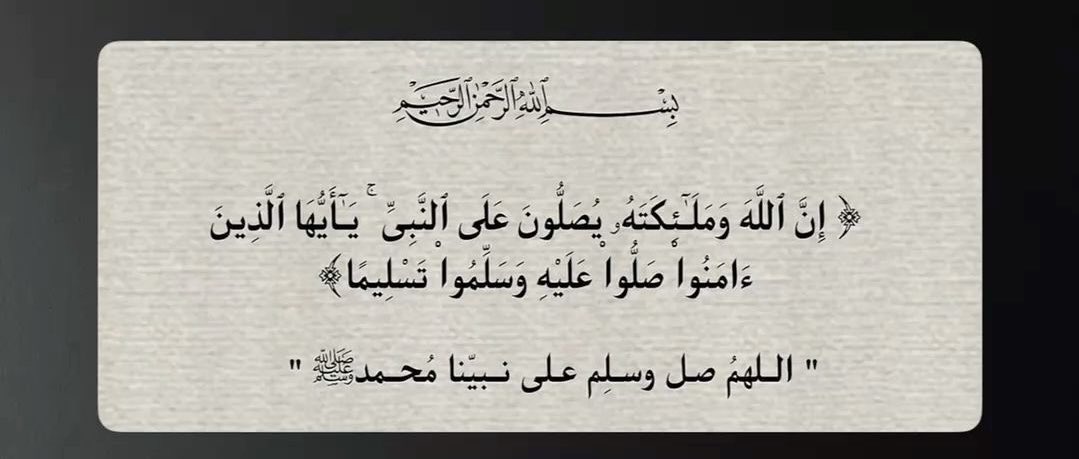 بِسْمِ ٱللَّهِ ٱلرَّحْمَٰنِ ٱلرَّحِيمِ
﴿ إِنَّ ٱللَّهَ وَمَلَـٰٓئِكَتَهُۥ يُصَلُّونَ عَلَى ٱلنَّبِىِّ ۚ يَـٰٓأَيُّهَا ٱلَّذِينَ
ءَامَنُوا۟ صَلُّوا۟ عَلَيْهِ وَسَلِّمُوا۟ تَسْلِيمًا﴾
" اللهمُ صل وسلِم على نبيّنا مُحمدﷺ "